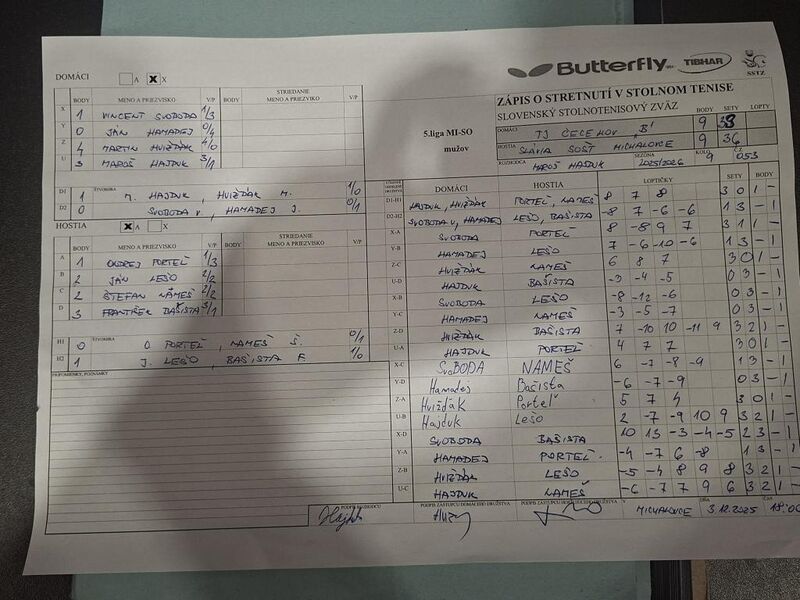 Butterfly TIBHAR
SSTZ
ZÁPIS O STRETNUTÍ V STOLNOM TENISE
SLOVENSKÝ STOLNOTENISOVÝ ZVÄZ
BODY SETY LOPTY
5.liga MI-SO
mužov
DOMÁCI TJ ČEČEHOV "B" 9 38
HOSTIA SLAVIA SOŠT MICHALOVCE 9 36
ROZHODCA MAROŠ HAJDUK SEZÓNA 2025/2026 KOLO 9 ČZ 053
DOMÁCI A X X
BODY MENO A PRIEZVISKO V/P BODY STRIEDANIE MENO A PRIEZVISKO V/P
X 1 VINCENT SVOBODA 1/3
Y 0 JÁN HAMADEJ 0/4
Z 4 MARTIN HVIŽĎÁK 4/0
U 3 MAROŠ HAJDUK 3/1
D1 1 ŠTVORHRA M. HAJDUK, HVIŽĎÁK M. 1/0
D2 0 SVOBODA V, HAMADEJ J. 0/1
HOSTIA X
BODY MENO A PRIEZVISKO V/P BODY STRIEDANIE MENO A PRIEZVISKO V/P
A 1 ONDREJ PORTEĽ 1/3
B 2 JÁN LEŠO 2/2
C 2 ŠTEFAN NÁMEŠ 2/2
D 3 FRANTIŠEK BAŠISTA 3/1
H1 0 ŠTVORHRA O PORTEĽ, NAMEŠ Š. 0/1
H2 1 J. LEŠO, BAŠISTA F 1/0
PRIPOMIENKY, POZNÁMKY
DOMÁCI HOSTIA LOPTIČKY SETY BODY
D1-H1 HAJDUK, HVIŽĎÁK PORTEĽ, NAMEŠ 8 7 8 3 0 1 -
D2-H2 SVOBODA V, HAMADEJ LEŠO, BAŠISTA -8 7 -6 -6 1 3 - 1
X-A SVOBODA PORTEĽ 8 -8 9 7 3 1 1 -
Y-B HAMADEJ LEŠO 7 -6 -10 -6 1 3 - 1
Z-C HVIŽĎÁK NAMEŠ 6 8 7 3 0 1 -
U-D HAJDUK BAŠISTA -3 -4 -5 0 3 - 1
X-B SVOBODA LEŠO -8 -12 -6 0 3 - 1
Y-C HAMADEJ NAMEŠ -3 -5 -7 0 3 - 1
Z-D HVIŽĎÁK BAŠISTA 7 -10 10 -11 9 3 2 1 -
U-A HAJDUK PORTEĽ 4 7 7 3 0 1 -
X-C SVOBODA NAMEŠ 6 -7 -8 -9 1 3 - 1
Y-D Hamadej Bašista -6 -7 -9 0 3 - 1
Z-A Hvižďák Porteľ 5 7 4 3 0 1 -
U-B Hajduk Lešo 2 -7 -9 10 9 3 2 1 -
X-D SVOBODA BAŠISTA 10 13 -3 -4 -5 2 3 - 1
Y-A HAMADEJ PORTEĽ -4 -7 6 -8 1 3 - 1
Z-B HVIŽĎÁK LEŠO -5 -4 8 9 8 3 2 1 -
U-C HAJDUK NAMEŠ -6 -7 7 9 6 3 2 1 -
PODPIS ROZHODCU PODPIS ZÁSTUPCU DOMÁCEHO DRUŽSTVA PODPIS ZÁSTUPCU HOSŤUJÚCEHO DRUŽSTVA V MICHALOVCE DŇA 3.12.2025 ČAS 18:00